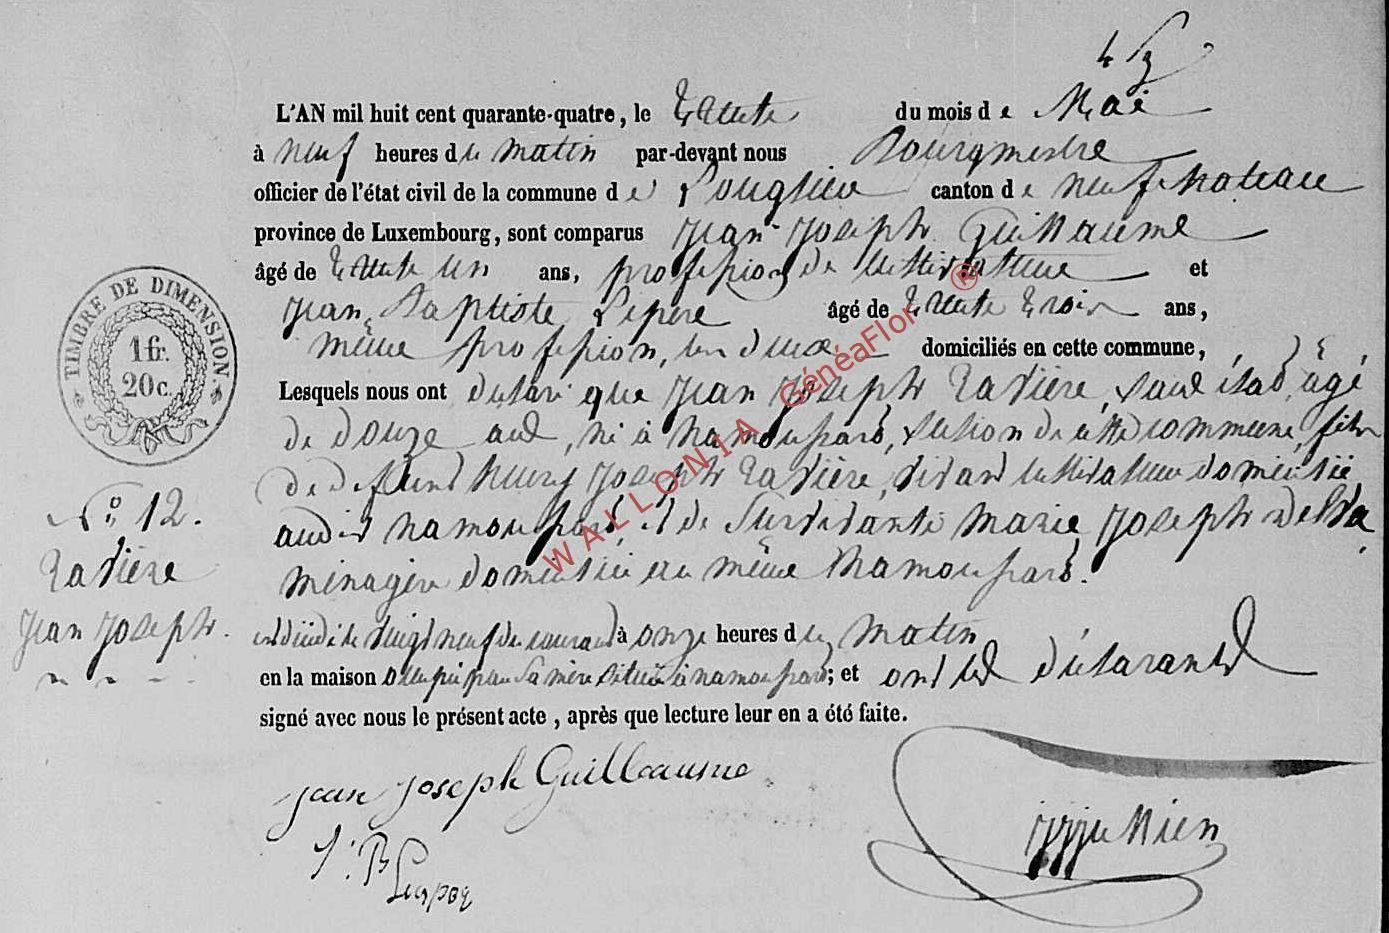 L'AN mil huit cent quarante-quatre, le trente du mois de Mai
à neuf heures du matin par-devant nous Bourgmestre
officier de l'état civil de la commune de Longlier canton de neufchateau
province de Luxembourg, sont comparus Jean Joseph Guillaume
âgé de trente un ans, profession de cultivateur et
Jean Baptiste Lepère âgé de trente trois ans,
même profession, les deux domiciliés en cette commune,
Lesquels nous ont déclaré que Jean Joseph Tavière, sans état, âgé
de douze ans, né à namoussart, section de cette commune, fils
de défunt henry Joseph Tavière, vivant cultivateur domicilié
audit namoussart, et de survivante marie Joseph
ménagère domiciliée au même namoussart.
est décédé le vingt neuf du courant à onze heures du matin
en la maison occupée par sa mère située à namoussart; et ont les déclarants
signé avec nous le présent acte, après que lecture leur en a été faite.
Jean Joseph Guillaume
J: B
TIMBRE DE DIMENSION
1 fr.
20 c.
N° 12.
Tavière
Jean Joseph.
WALLONIA GénéaFlor ®